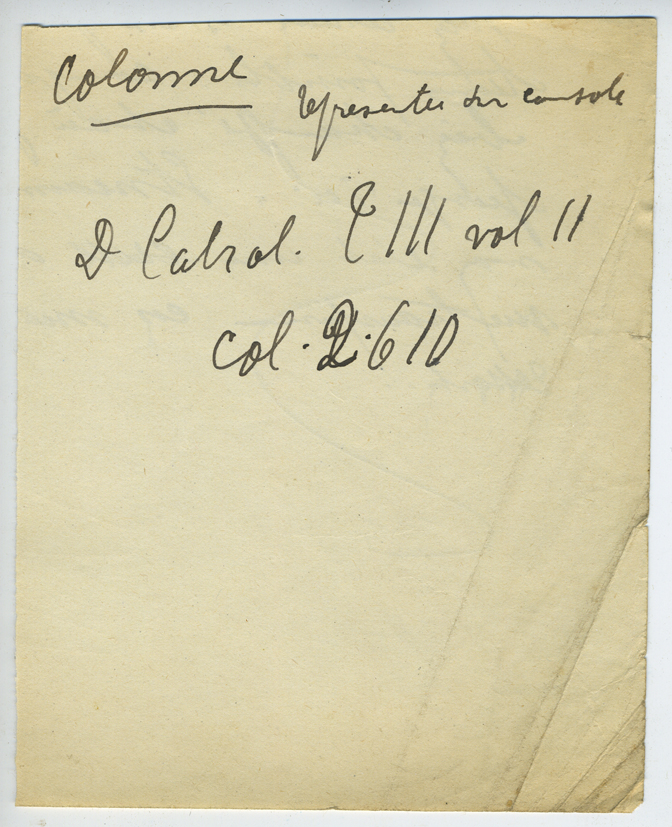 Colonne
representée sur console
D Cabrol. T III vol II
col. 2.610